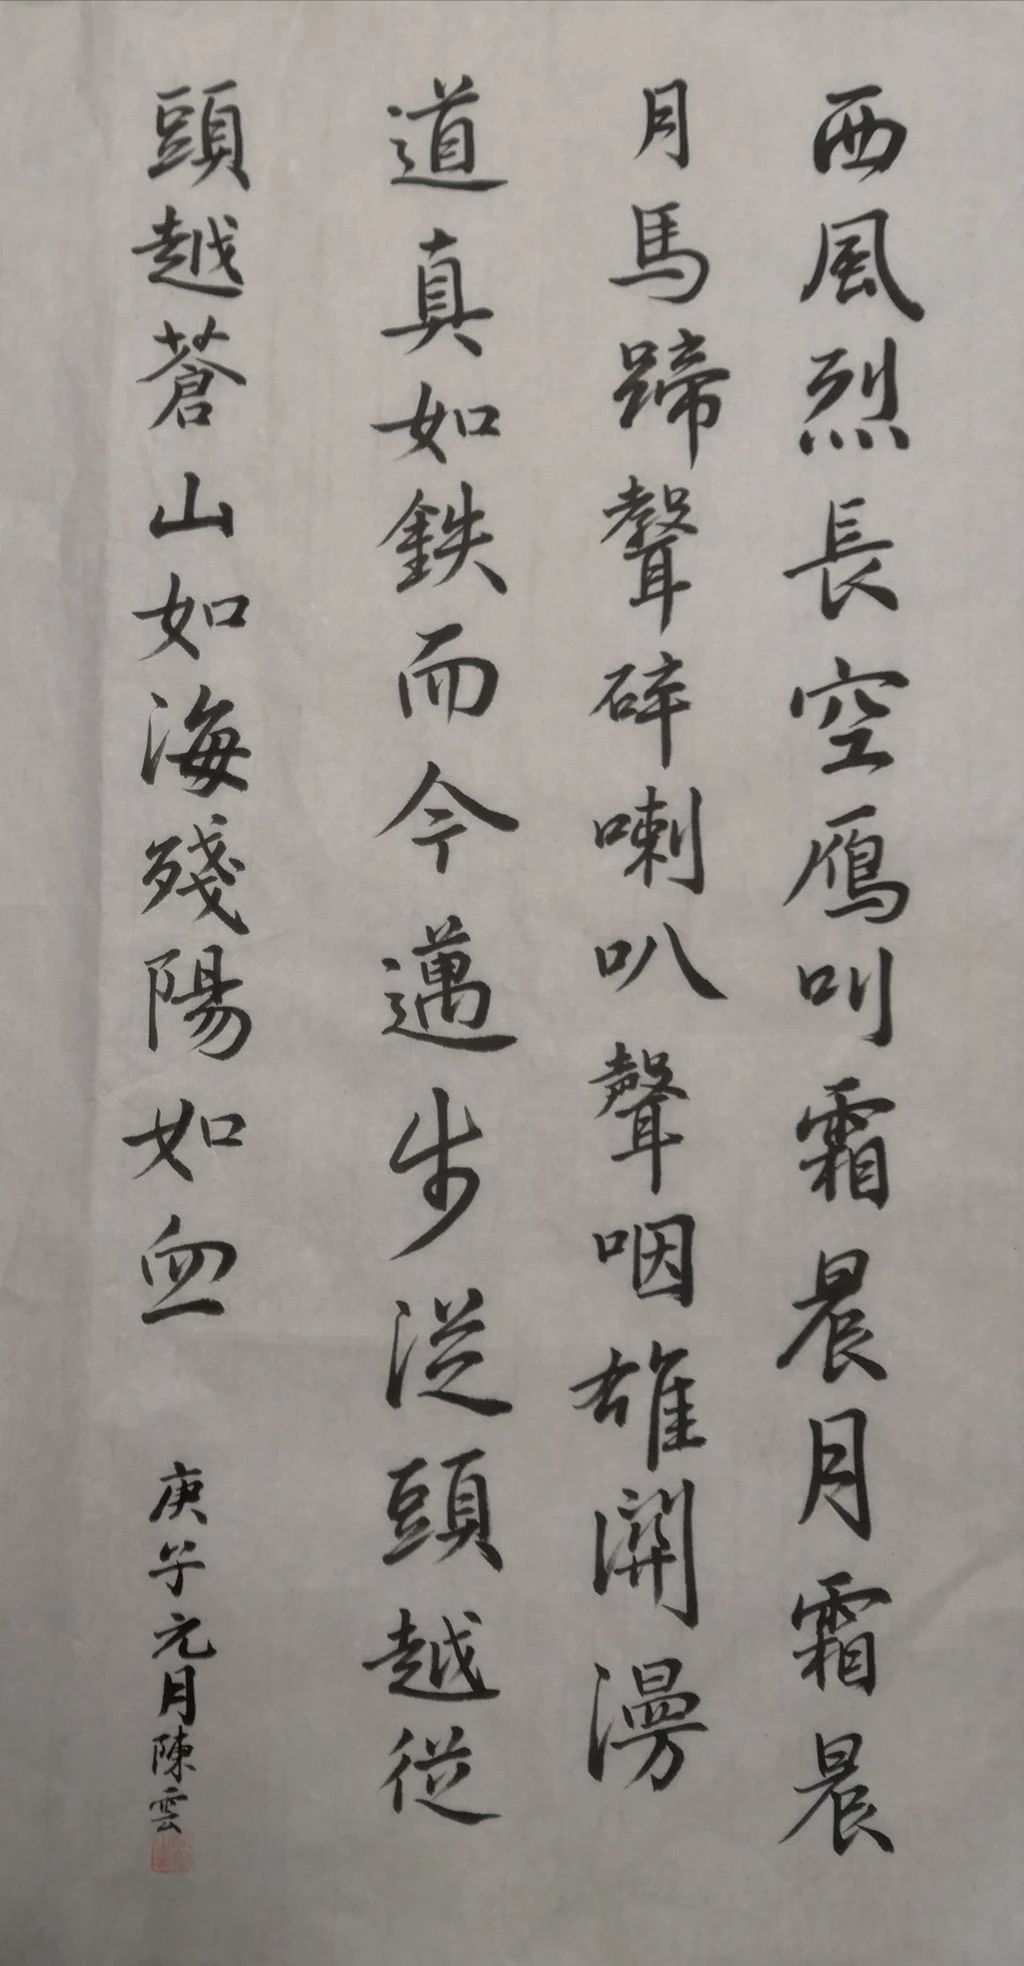 西風烈長空鴈叫霜晨月霜晨
月馬蹄聲碎喇叭聲咽雄關漫
道真如鉄而今邁步從頭越從
頭越蒼山如海殘陽如血
庚子元月陳雲